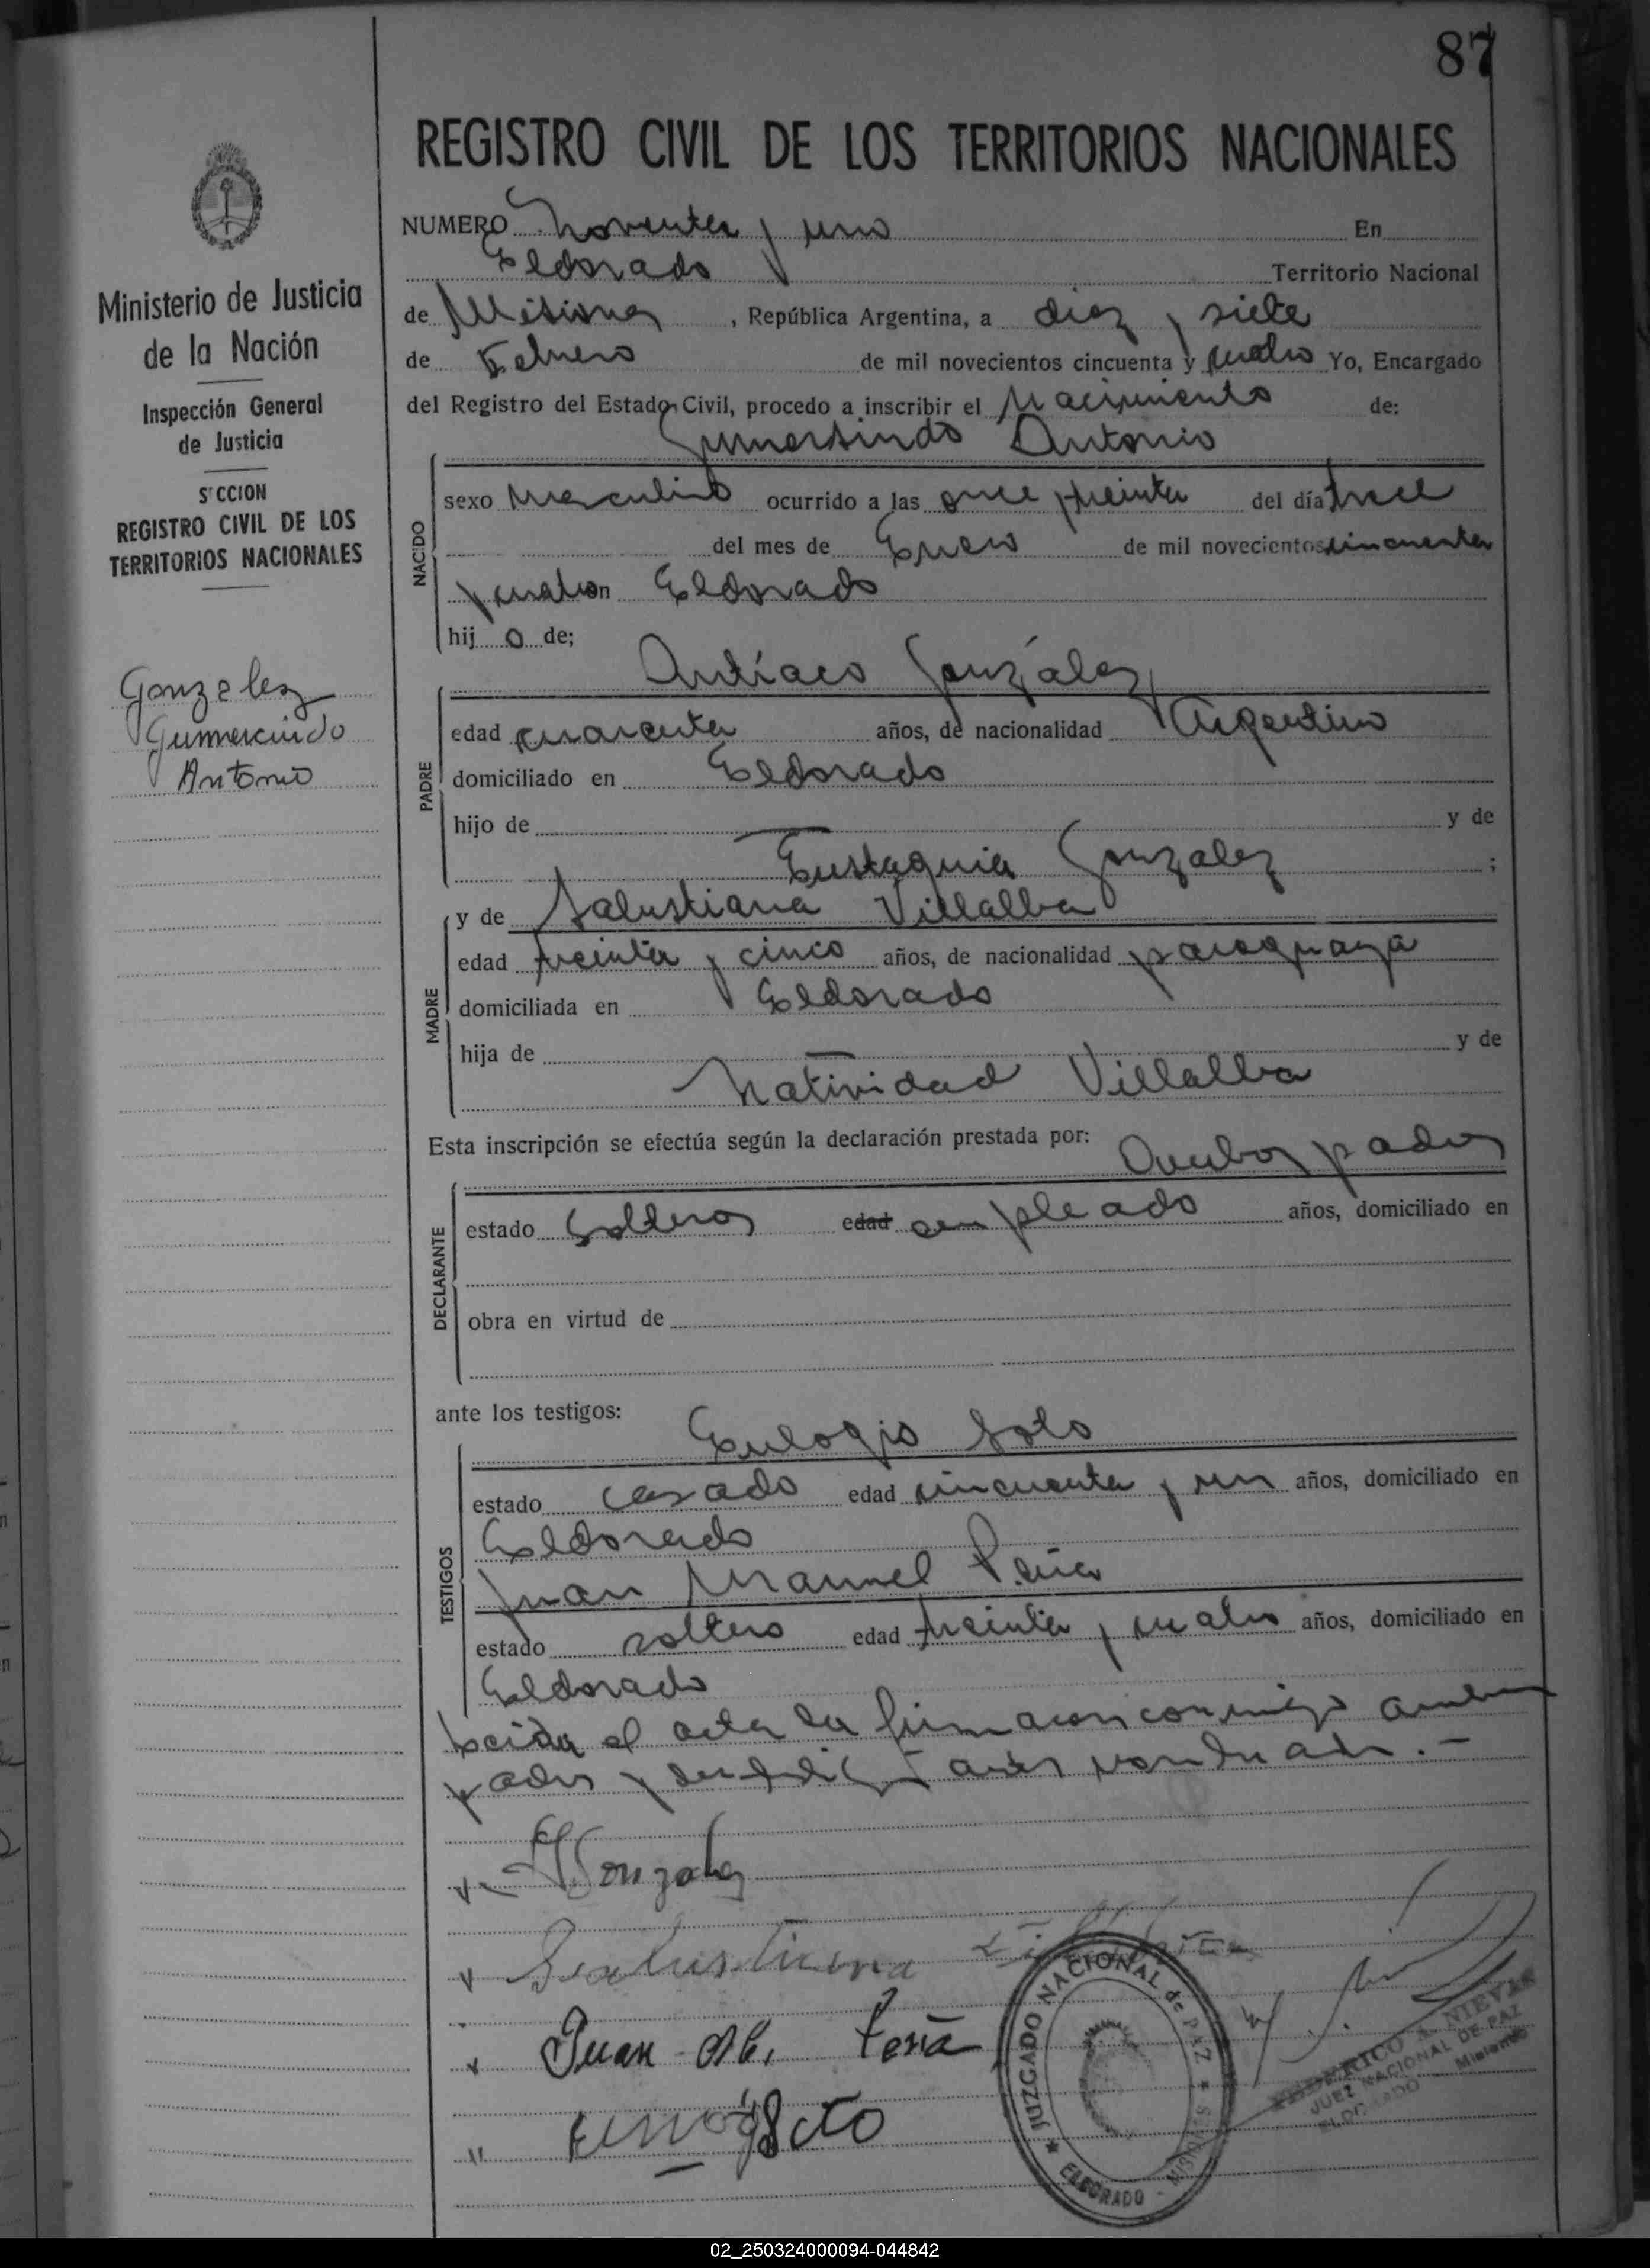 87
REGISTRO CIVIL DE LOS TERRITORIOS NACIONALES
Ministerio de Justicia
de la Nación
Inspección General
de Justicia
S'CCION
REGISTRO CIVIL DE LOS
TERRITORIOS NACIONALES
Gonzalez
Gumercindo
Antonio
NUMERO Noventa y uno En
Eldorado Territorio Nacional
de Misiones, República Argentina, a diez y siete
de Febrero de mil novecientos cincuenta y cuatro Yo, Encargado
del Registro del Estado Civil, procedo a inscribir el Nacimiento de:
Gumersindo Antonio
NACIDO
sexo Masculino ocurrido a las once treinta del día trece
del mes de Enero de mil novecientos cincuenta
y cuatro en Eldorado
hij o de;
Antíaco González
PADRE
edad cuarenta años, de nacionalidad Argentino
domiciliado en Eldorado
hijo de y de
Eustaquia Gonzalez ;
y de Salustiana Villalba
MADRE
edad treinta y cinco años, de nacionalidad paraguaya
domiciliada en Eldorado
hija de y de
Natividad Villalba
Esta inscripción se efectúa según la declaración prestada por: Ambos padres
DECLARANTE
estado Solteros edad empleado años, domiciliado en
obra en virtud de
ante los testigos:
Eulogio Soto
TESTIGOS
estado casado edad cincuenta y un años, domiciliado en
Eldorado
Juan Manuel Peña
estado soltero edad treinta y cuatro años, domiciliado en
Eldorado
Leida el acta la firmaron conmigo ambos
padres y
Gonzalez
Salustiana Villalba
Juan M. Peña
Eulogio Soto
JUZGADO NACIONAL de PAZ
ELDORADO - MISIONES
NIEVAS
JUEZ NACIONAL DE PAZ
ELDORADO - Misiones
02_250324000094-044842